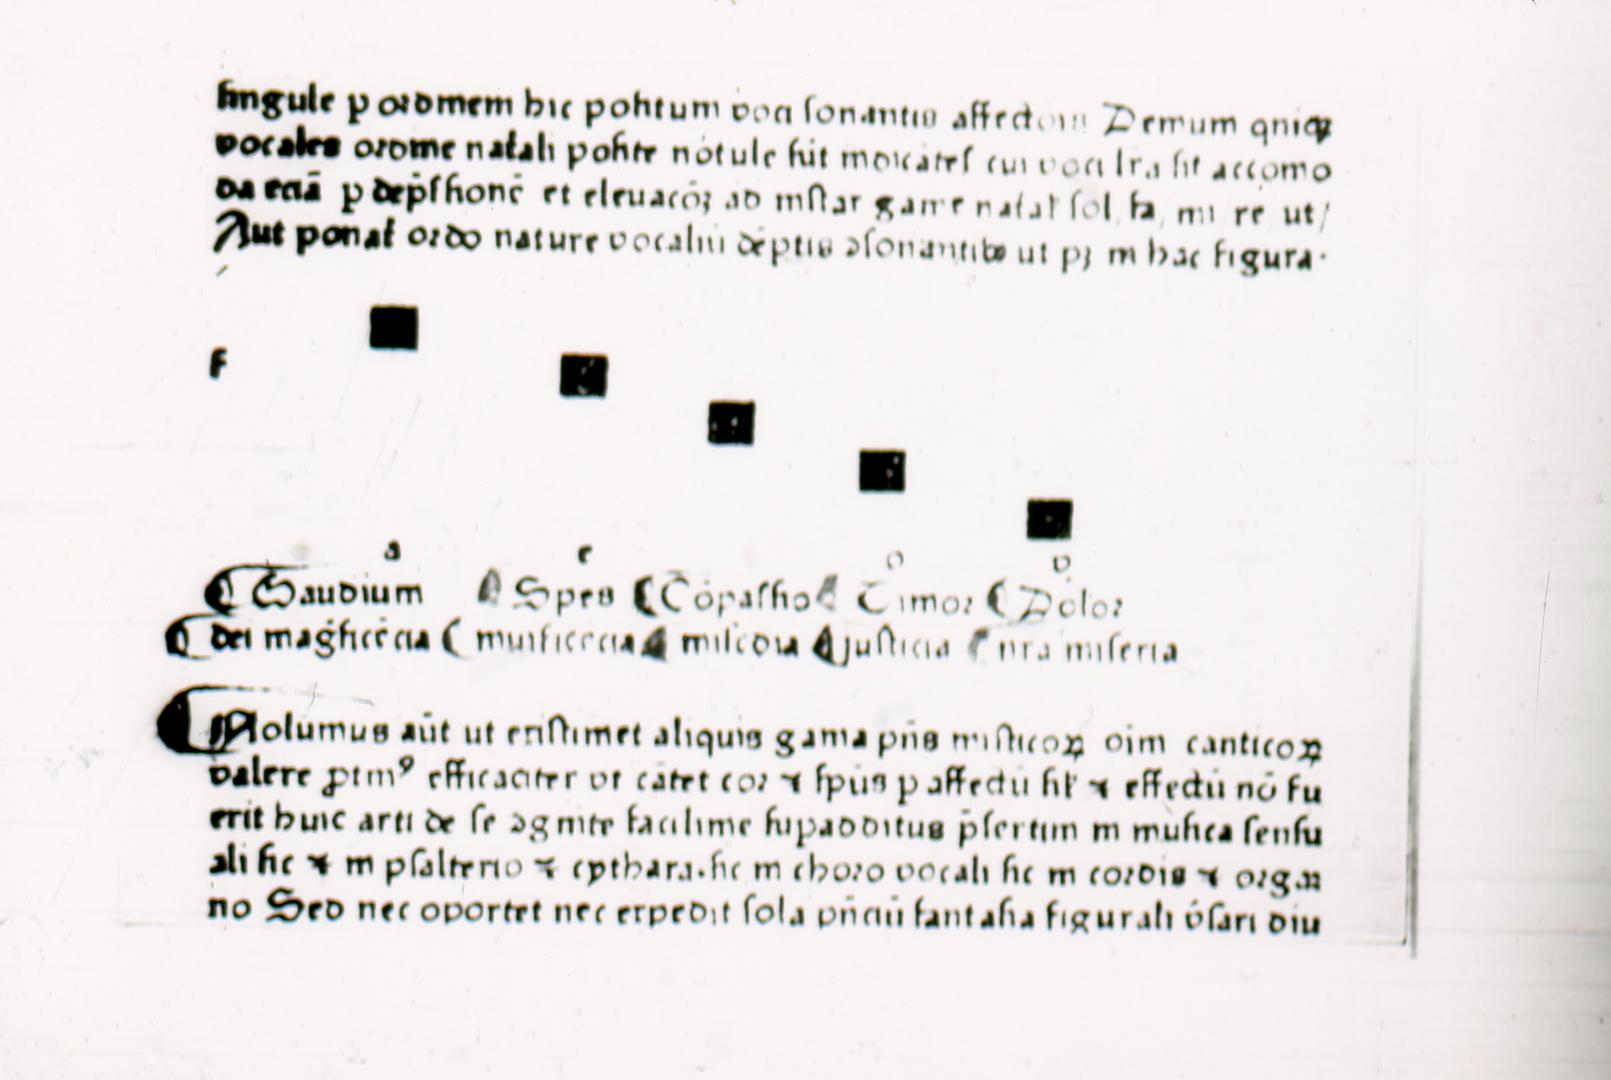 singule p ordinem hic positum voci sonantis affectoris Demum qniqꝫ
vocales ordine natali posite notule sūt indicātes cui voci lr̄a sit accomo
da eciā p dep̄ssionē et eleuacōꝫ ad instar game natal' sol, fa, mi re ut/
Aut ponat̄ ordo nature vocaliū dēptis ↄsonantibꝰ ut pꝫ in hac figura.
F
a e o v
Gaudium Spes Cōpassio Timor Dolor
dei mag̅ficēcia munificēcia mīscdia Justicia nr̄a miseria
Nolumus aūt ut existimet aliquis gama pn̄s misticoꝝ oīm canticoꝝ
valere ꝑtinꝰ efficaciter vt cātet cor ⁊ spūs p affectū sil' ⁊ effectū nō fu
erit huic arti de se ↄgnite facilime supadditus p̄sertim in musica sensu
ali sic ⁊ in psalterio ⁊ cythara. sic in choro vocali sic in cordis ⁊ orga
no Sed nec oportet nec expedit sola pn̄ciū fantasia figurali v̄sari diu